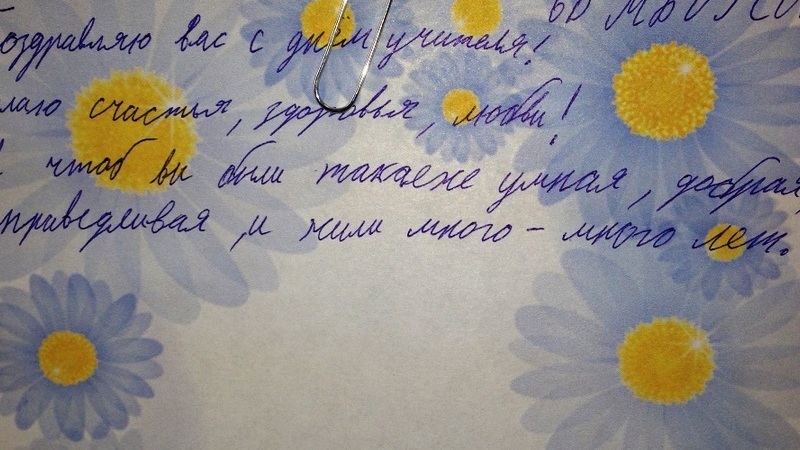 оздравляю вас с днём учителя!
лаю счастья, здоровья, любви!
чтоб вы были такаеже умная, добрая,
праведливая, и жили много - много лет.